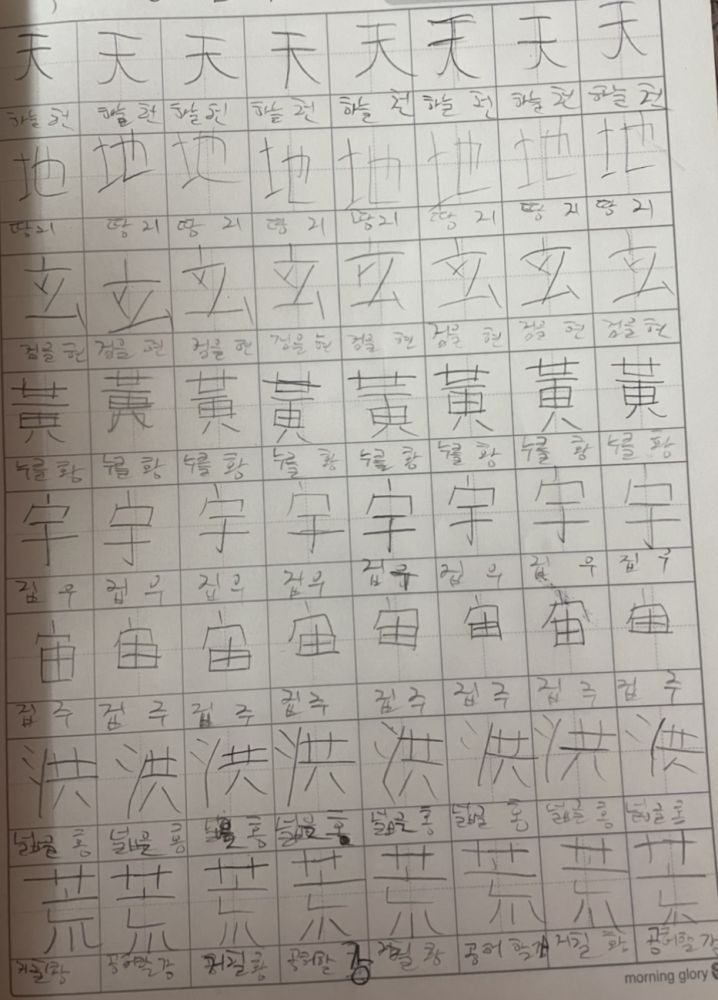 天 天 天 天 天 天 天 天
하늘 천 하늘 천 하늘 천 하늘 천 하늘 천 하늘 천 하늘 천 하늘 천
地 地 地 地 地 地 地 地
땅 지 땅 지 땅 지 땅 지 땅 지 땅 지 땅 지 땅 지
玄 玄 玄 玄 玄 玄 玄 玄
검을 현 검을 현 검을 현 검을 현 검을 현 검을 현 검을 현 검을 현
黃 黃 黃 黃 黃 黃 黃 黃
누를 황 누를 황 누를 황 누를 황 누를 황 누를 황 누를 황 누를 황
宇 宇 宇 宇 宇 宇 宇 宇
집 우 집 우 집 우 집 우 집 우 집 우 집 우 집 우
宙 宙 宙 宙 宙 宙 宙 宙
집 주 집 주 집 주 집 주 집 주 집 주 집 주 집 주
洪 洪 洪 洪 洪 洪 洪 洪
넓을 홍 넓을 홍 넓을 홍 넓을 홍 넓을 홍 넓을 홍 넓을 홍 넓을 홍
荒 荒 荒 荒 荒 荒 荒 荒
거칠 황 공허할 강 거칠 황 공허할 강 거칠 황 공허할 강 거칠 황 공허할 강
morning glory